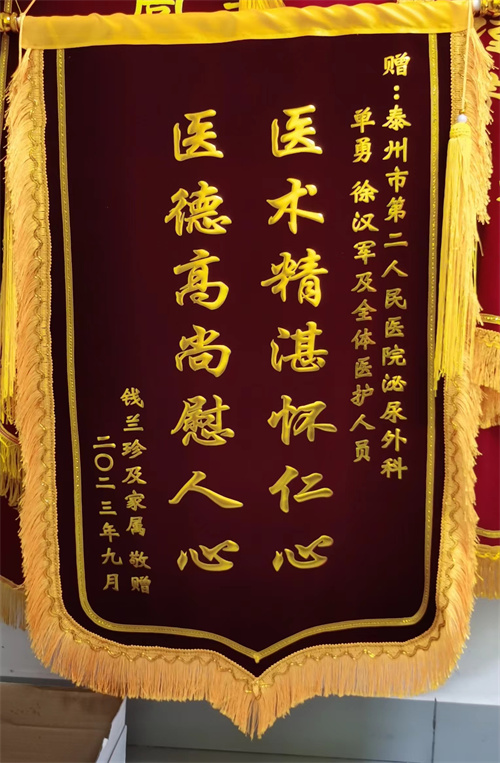 赠：泰州市第二人民医院泌尿外科
单勇 徐汉军及全体医护人员
医术精湛怀仁心
医德高尚慰人心
钱兰珍及家属 敬赠
二〇二三年九月